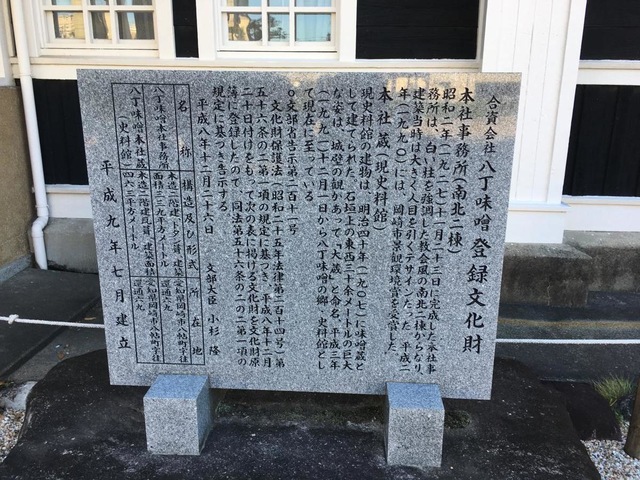 合資会社 八丁味噌 登録文化財
本社事務所(南北二棟)
昭和二年(一九二七)十二月二十三日に完成した本社事
務所は、白い柱を強調した教会風の南北二棟からなり、
建築当時は大きく人目を引くデザインだった。平成二
年(一九九〇)には、岡崎市景観環境賞を受賞した。
本社蔵(現史料館)
現史料館の建物は、明治四十年(一九〇七)に味噌蔵と
して建てられた。石垣上の東西三十余メートルの巨大
な姿は、城壁の観があって「大蔵」と命名、平成三年
(一九九一)十一月一日から「八丁味噌の郷」史料館とし
て現在に至っている。
○文部省告示第二百十一号
文化財保護法(昭和二十五年法律第二百十四号)第
五十六条の二第一項の規定に基づき、平成八年十二月
二十日付けをもって次の表に掲げる文化財を文化財原
簿に登録したので、同法第五十六条の二の二第一項の
規定に基づき告示する。
平成八年十二月二十六日 文部大臣 小杉 隆
名称 構造及び形式 所在地
八丁味噌本社事務所 木造二階建、瓦葺、建築面積二三九平方メートル 愛知県岡崎市八帖町字往還通六九
八丁味噌本社蔵(史料館) 木造二階建、瓦葺、建築面積四六三平方メートル 愛知県岡崎市八帖町字往還通六九
平成九年七月建立